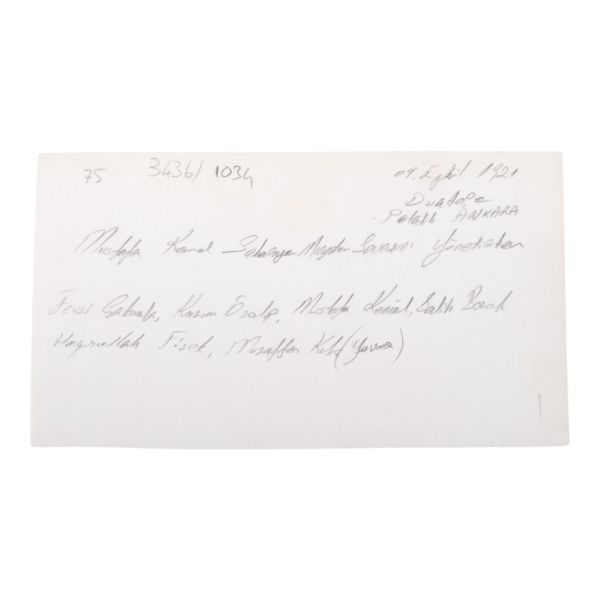 75 3436/1034
09. Eylül 1921
Duatepe
Polatlı ANKARA
Mustafa Kemal Sakarya Meydan Savaşını Yönetirken
Fevzi Çakmak, Kazım Özalp, Mustafa Kemal, Salih Bozok
Hayrullah Fişek, Muzaffer Kılıç (Yaver)